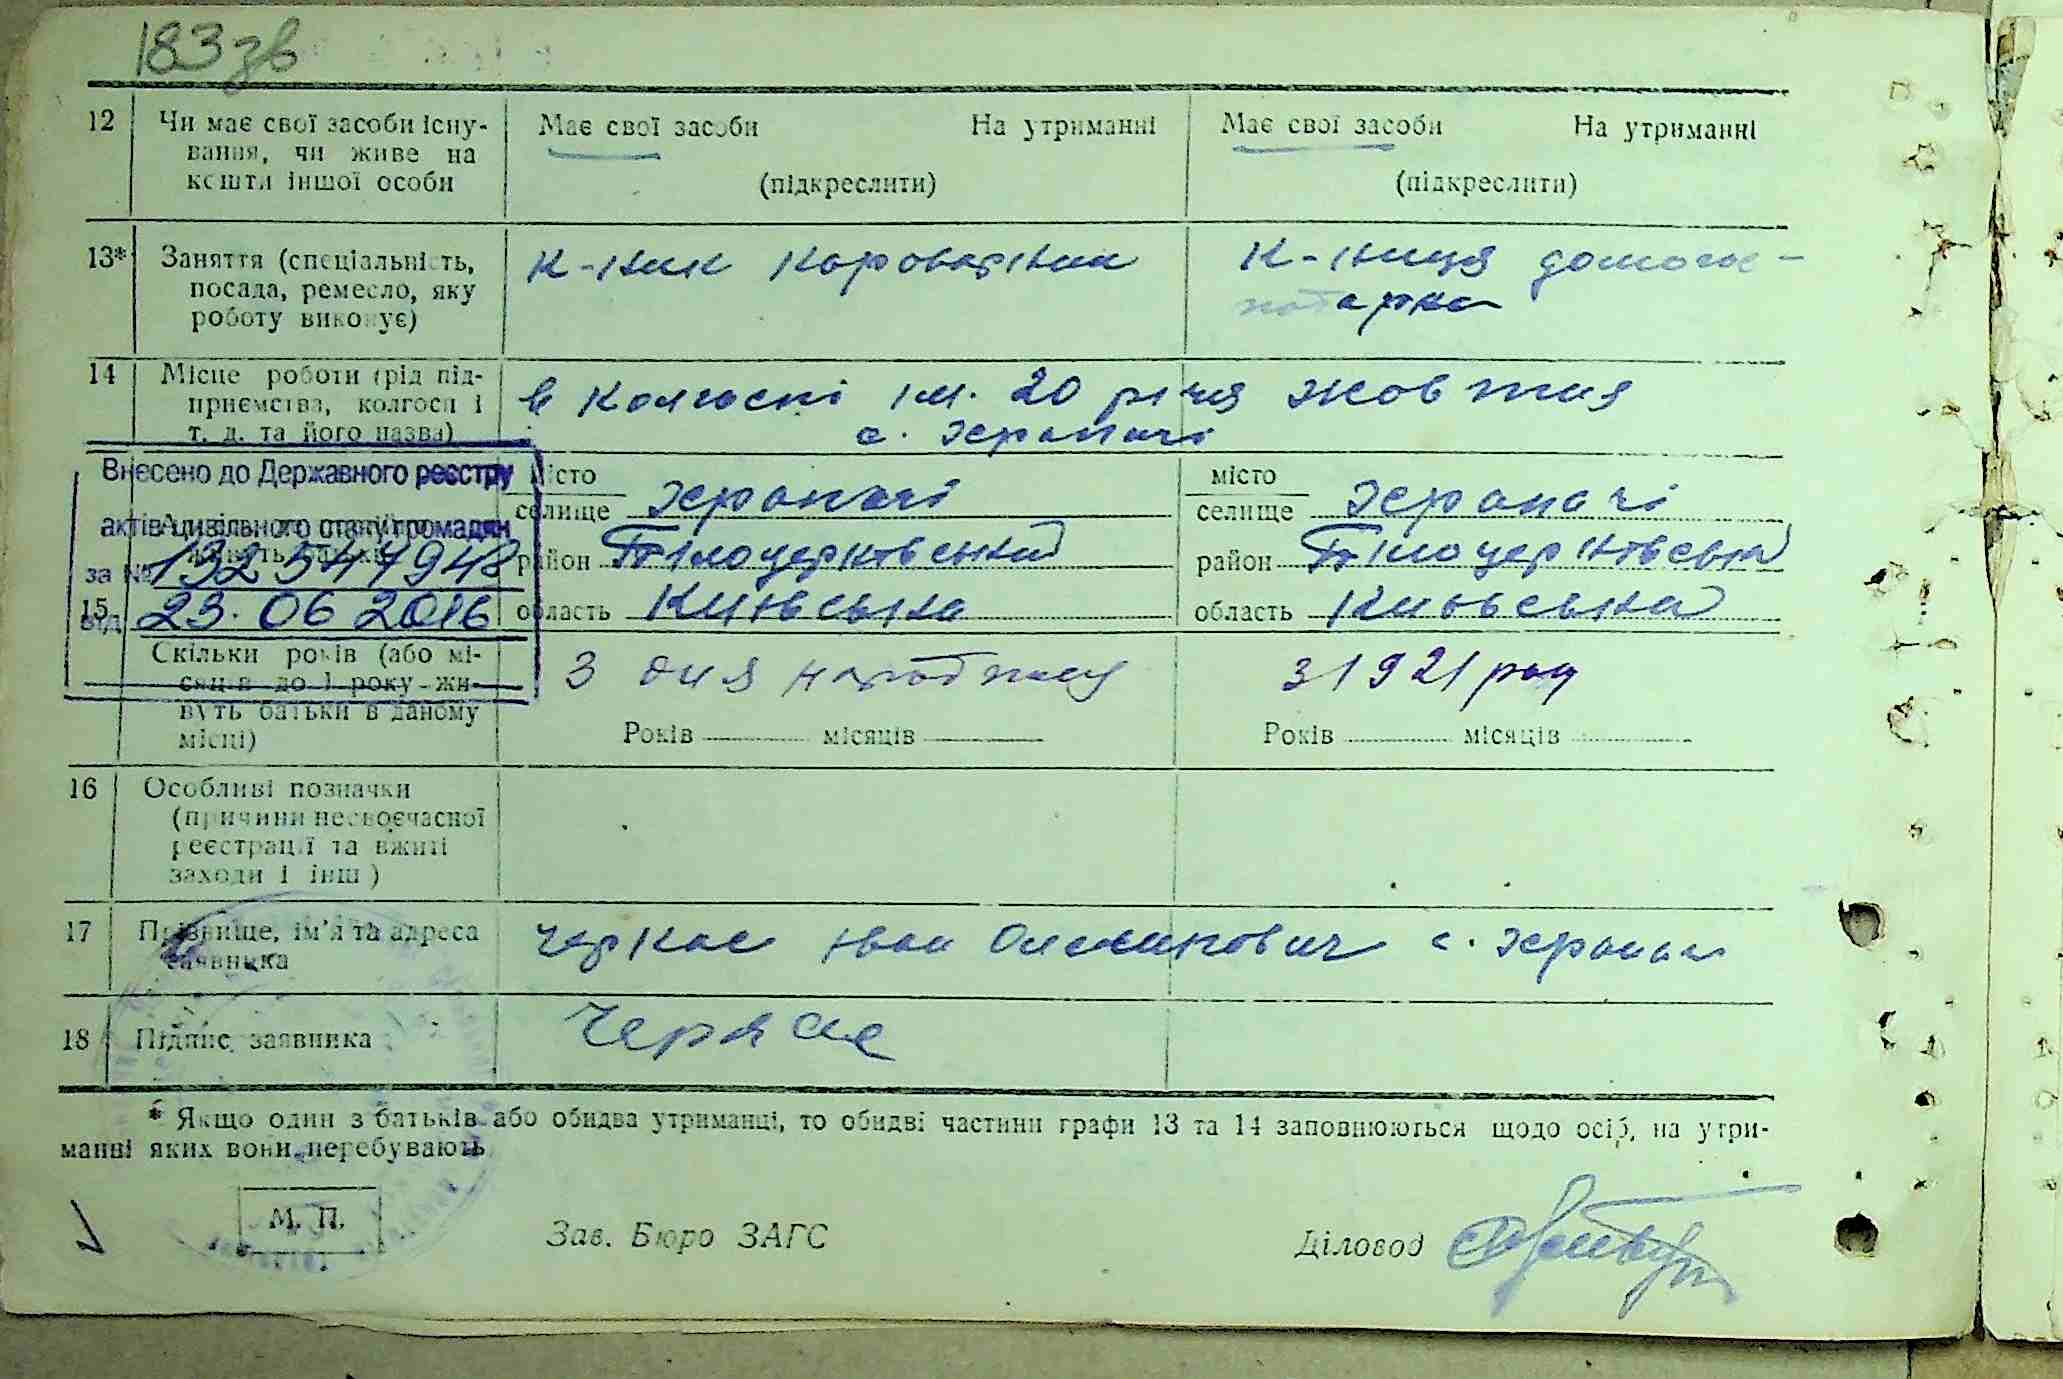 183 зв
12 Чи має свої засоби існу- Має свої засоби На утриманні Має свої засоби На утриманні
вання, чи живе на
кошти іншої особи (підкреслити) (підкреслити)
13* Заняття (спеціальність, к-ник к-ниця
посада, ремесло, яку
роботу виконує)
14 Місце роботи (рід під- в колгоспі ім. 20 річчя жовтня
приємства, колгосп і с. Храпачі
т. д. та його назва)
Внесено до Державного реєстру
актів цивільного стану громадян
за № 132547948
від 23.06 2016
місто місто
селище Храпачі селище Храпачі
район Білоцерківський район Білоцерківський
15 область Київська область Київська
Скільки років (або мі- З дня народження з 1921 року
сяців до 1 року жи-
вуть батьки в даному
місці) Років місяців Років місяців
16 Особливі позначки
(причини несвоєчасної
реєстрації та вжиті
заходи і інш )
17 Прізвище, ім'я та адреса Черкас Іван с. Храпачі
заявника
18 Підпис заявника Черкас
* Якщо один з батьків або обидва утриманці, то обидві частини графи 13 та 14 заповнюються щодо осіб, на утри-
манні яких вони перебувають
М. П. Зав. Бюро ЗАГС Діловод